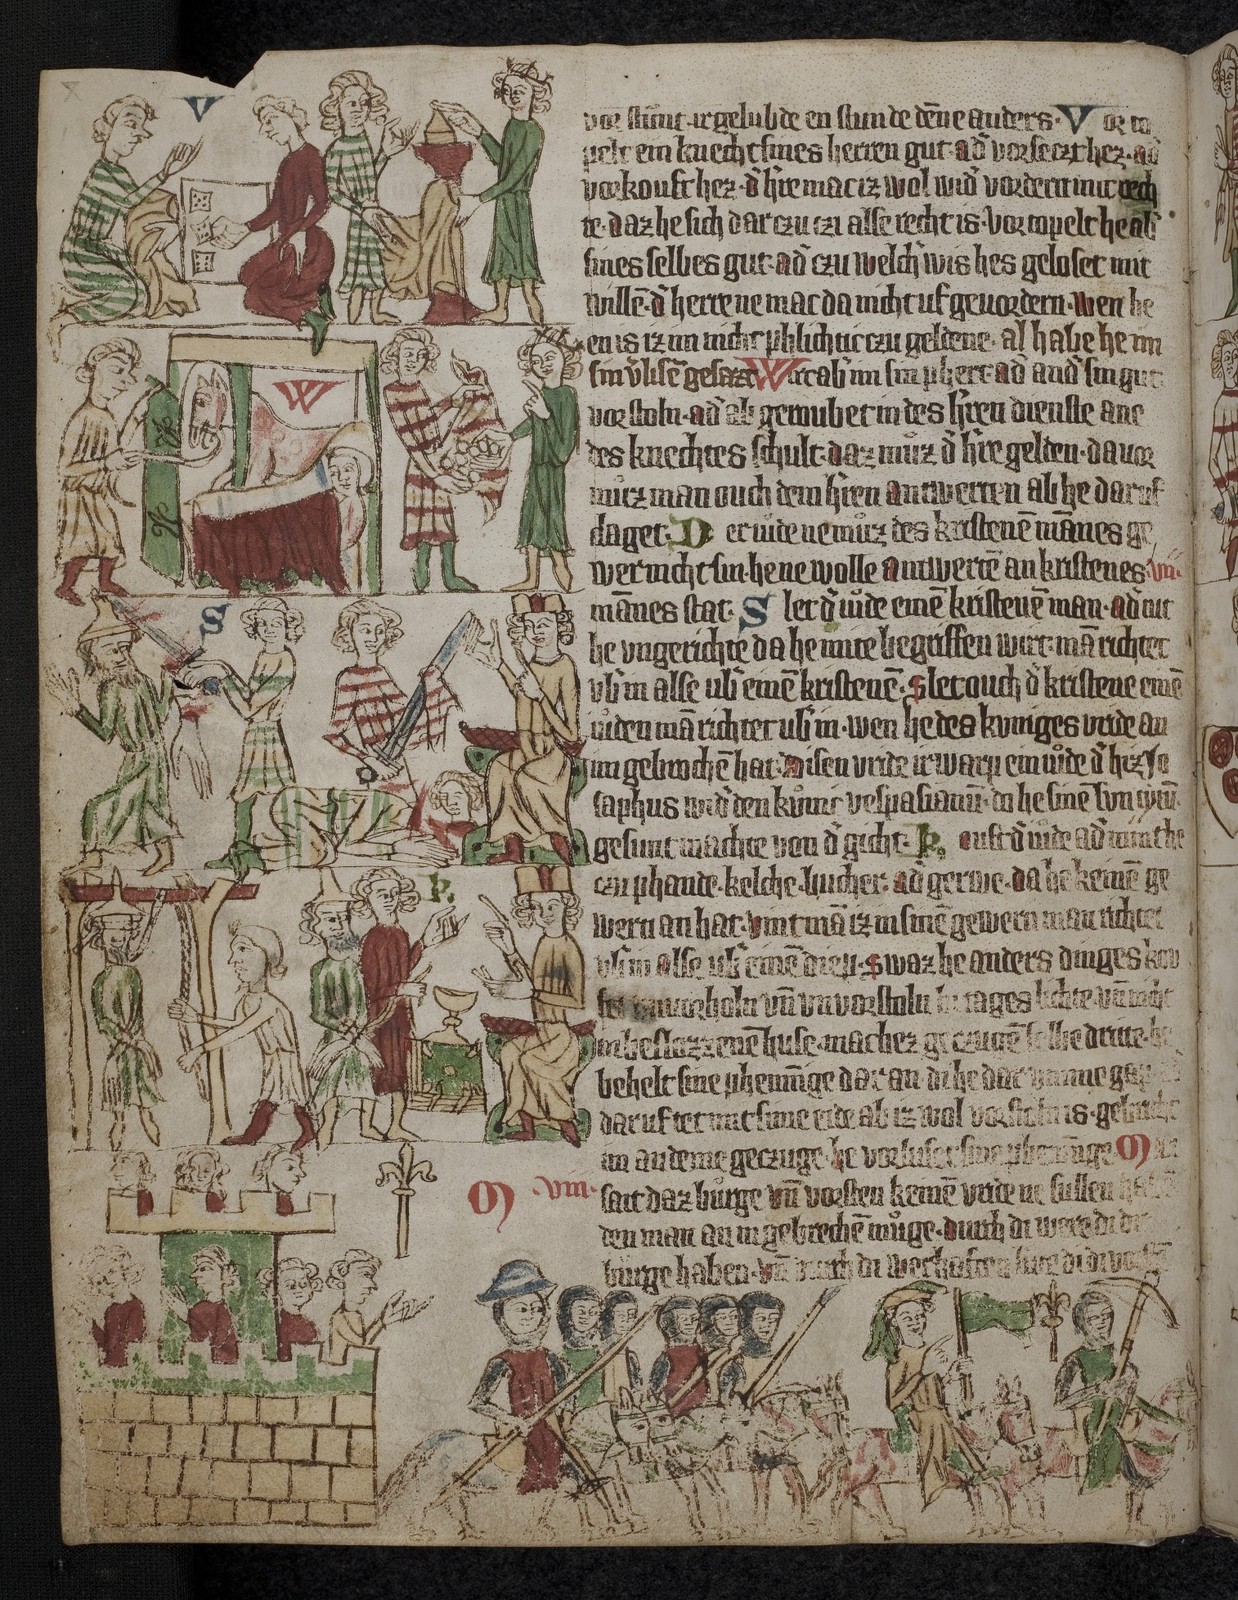 V
vor stunt. ir gelubde en stunde dēne anders. Vor to
pelt ein knecht sines herren gut. ad̄ vorseczt hez. ad̄
vorkouft hez. d̄ h̄re mac iz wol wid̄ vordern mit rech
te. daz he sich dar czu czi alse recht is. vortopelt he ab̄
sines selbes gut. ad̄ czu welch̄ wis hes geloset mit
willē. d̄ herre ne mac da nicht uf gevordern. wen he
en is iz im nicht phlichtic czu geldene. al habe he im
sin ... gesaczt. Wirt ab̄ im sin phert ad̄ and̄ sin gut
vorstoln. ad̄ ab geroubet in des h̄ren dienste ane
des knechtes schult. daz muͦz d̄ h̄re gelden. da vor
muͦz man ouch dem h̄ren antwerten ab he daruf
claget. Der iude ne muͦz des kristenē mānes ge
wer nicht sin. he ne wolle antwertē an kristenes
mānes stat. Slet d̄ iude einē kristenē man. ad̄ tut
he ungerichte da he mite begriffen wirt. mā richtet
ub̄ in alse ub̄ einē kristenē. slet ouch d̄ kristene einē
iuden mā richtet ub̄ in. wen he des kuniges vride an
im gebrochē hat. disen vride irwarp ein iude d̄ hiz Jo
saphus wid̄ den kunic vespasianū. do he sinē sun tytū
gesunt machte von d̄ gicht. Koust d̄ iude ad̄ nimt he
czu phande. kelche. bucher. ad̄ gerwe. da he keinē ge
wern an hat. vint mā iz in sinē gewern man richtet
ub̄ in alse ub̄ einē diep. swaz he anders dinges kou
fet unvorholn vn̄ unvorstoln bi tages lichte vn̄ nicht
in beslozzenē huse. mac hez geczugē selbe dritte. he
behelt sine phennīge dar an. di he dar umme gap
daruf tet mit sime eide ab iz wol vorstoln is. gebricht
im an deme geczuge. he vorluset sine phennīge. M
sait daz burge vn̄ vorsten keinē vride ne sullen habē
den man an in gebrechē muge. durch di were di di
burge haben. vn̄ durch di werhaften
W
S
K
M
viii.
vii.